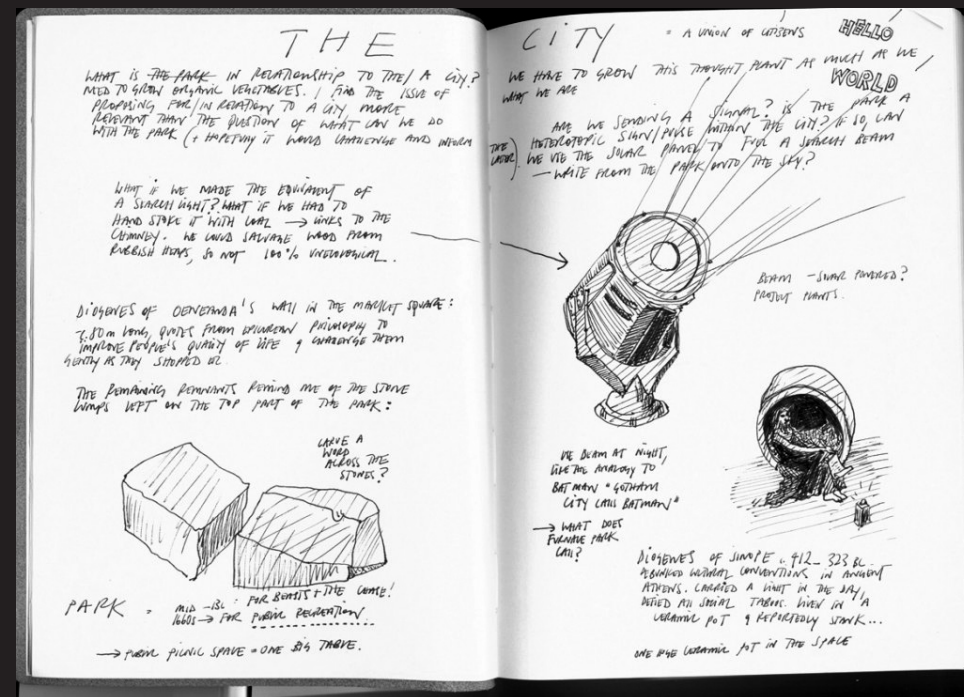 THE
WHAT IS THE PARK IN RELATIONSHIP TO THE/A CITY?
NEED TO GROW ORGANIC VEGETABLES. I FIND THE ISSUE OF
PROPOSING FOR/IN RELATION TO A CITY MORE
RELEVANT THAN THE QUSTION OF WHAT CAN WE DO
WITH THE PARK (+ HOPEFULLY IT WOULD CHALLENGE AND INFORM
WHAT IF WE MADE THE EQUIVALENT OF
A SEARCH LIGHT? WHAT IF WE HAD TO
HAND STOKE IT WITH COAL → LINKS TO THE
CHIMNEY. WE COULD SALVAGE WOOD FROM
RUBBISH HEAPS, SO NOT 100% UNECOLOGICAL.
DIOGENES OF OENEANDA'S WALL IN THE MARKET SQUARE:
80m LONG, QUOTES FROM EPICUREAN PHILOSOPHY TO
IMPROVE PEOPLE'S QUALITY OF LIFE & CHALLENGE THEM
GENTLY AS THEY SHOPPED
THE REMAINING REMNANTS REMIND ME OF THE STONE
LUMPS LEFT ON THE TOP PART OF THE PARK:
CARVE A
WORD
ACROSS THE
STONES?
PARK = MID -13C : FOR BEASTS + THE CHASE!
1660s → FOR PUBLIC RECREATION.
→ PUBLIC PICNIC SPACE = ONE BIG TABLE.
CITY = A UNION OF CITISENS
HELLO
WORLD
WE HAVE TO GROW THIS THOUGHT PLANT AS MUCH AS WE
WHAT WE ARE
ARE WE SENDING A SIGNAL? IS THE PARK A
HETEROTOPIC SIGN/PULSE WITHIN THE CITY? IF SO, CAN
THE LATER) WE USE THE SOLAR PANEL TO FUEL A SEARCH BEAM
— WRITE FROM THE PARK ONTO THE SKY?
BEAM - SOLAR POWERED?
PROJECT PLANTS.
WE BEAM AT NIGHT,
LIKE THE ANALOGY TO
BATMAN "GOTHAM
CITY CALLS BATMAN"
→ WHAT DOES
FURNACE PARK
CALL?
DIOGENES OF SINOPE c. 412 - 323 BC.
DEBUNKED CULTURAL CONVENTIONS IN ANCIENT
ATHENS. CARRIED A LIGHT IN THE DAY,
DEFIED ALL SOCIAL TABOOS. LIVED IN A
CERAMIC POT & REPORTEDLY STANK...
ONE HUGE CERAMIC POT IN THE SPACE